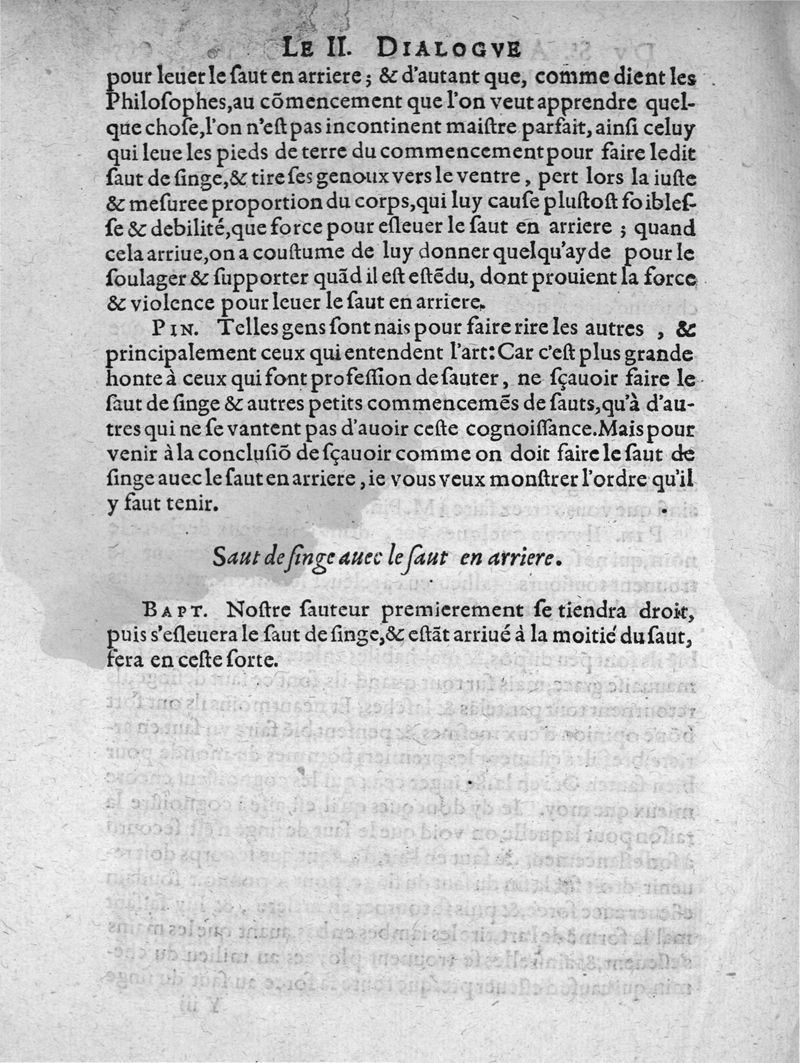 LE II. DIALOGVE
pour leuer le ſaut en arriere; & d'autant que, comme dient les
Philoſophes,au cõmencement que l'on veut apprendre quel-
que choſe,l'on n'eſt pas incontinent maiſtre parfait, ainſi celuy
qui leue les pieds de terre du commencement pour faire ledit
ſaut de ſinge,& tire ſes genoux vers le ventre, pert lors la iuſte
& meſuree proportion du corps,qui luy cauſe pluſtoſt foibleſ-
ſe & debilité,que force pour eſleuer le ſaut en arriere ; quand
cela arriue,on a couſtume de luy donner quelqu'ayde pour le
ſoulager & ſupporter quãd il eſt eſtẽdu, dont prouient la force
& violence pour leuer le ſaut en arriere.
PIN. Telles gens ſont nais pour faire rire les autres , &
principalement ceux qui entendent l'art: Car c'eſt plus grande
honte à ceux qui font profeſſion de ſauter, ne ſçauoir faire le
ſaut de ſinge & autres petits commencemẽs de ſauts,qu'à d'au-
tres qui ne ſe vantent pas d'auoir ceſte cognoiſſance. Mais pour
venir à la concluſiõ de ſçauoir comme on doit faire le ſaut de
ſinge auec le ſaut en arriere, ie vous veux monſtrer l'ordre qu'il
y faut tenir.
Saut de ſinge auec le ſaut en arriere.
BAPT. Noſtre ſauteur premierement ſe tiendra droit,
puis s'eſleuera le ſaut de ſinge,& eſtãt arriué à la moitié du ſaut,
fera en ceſte ſorte.